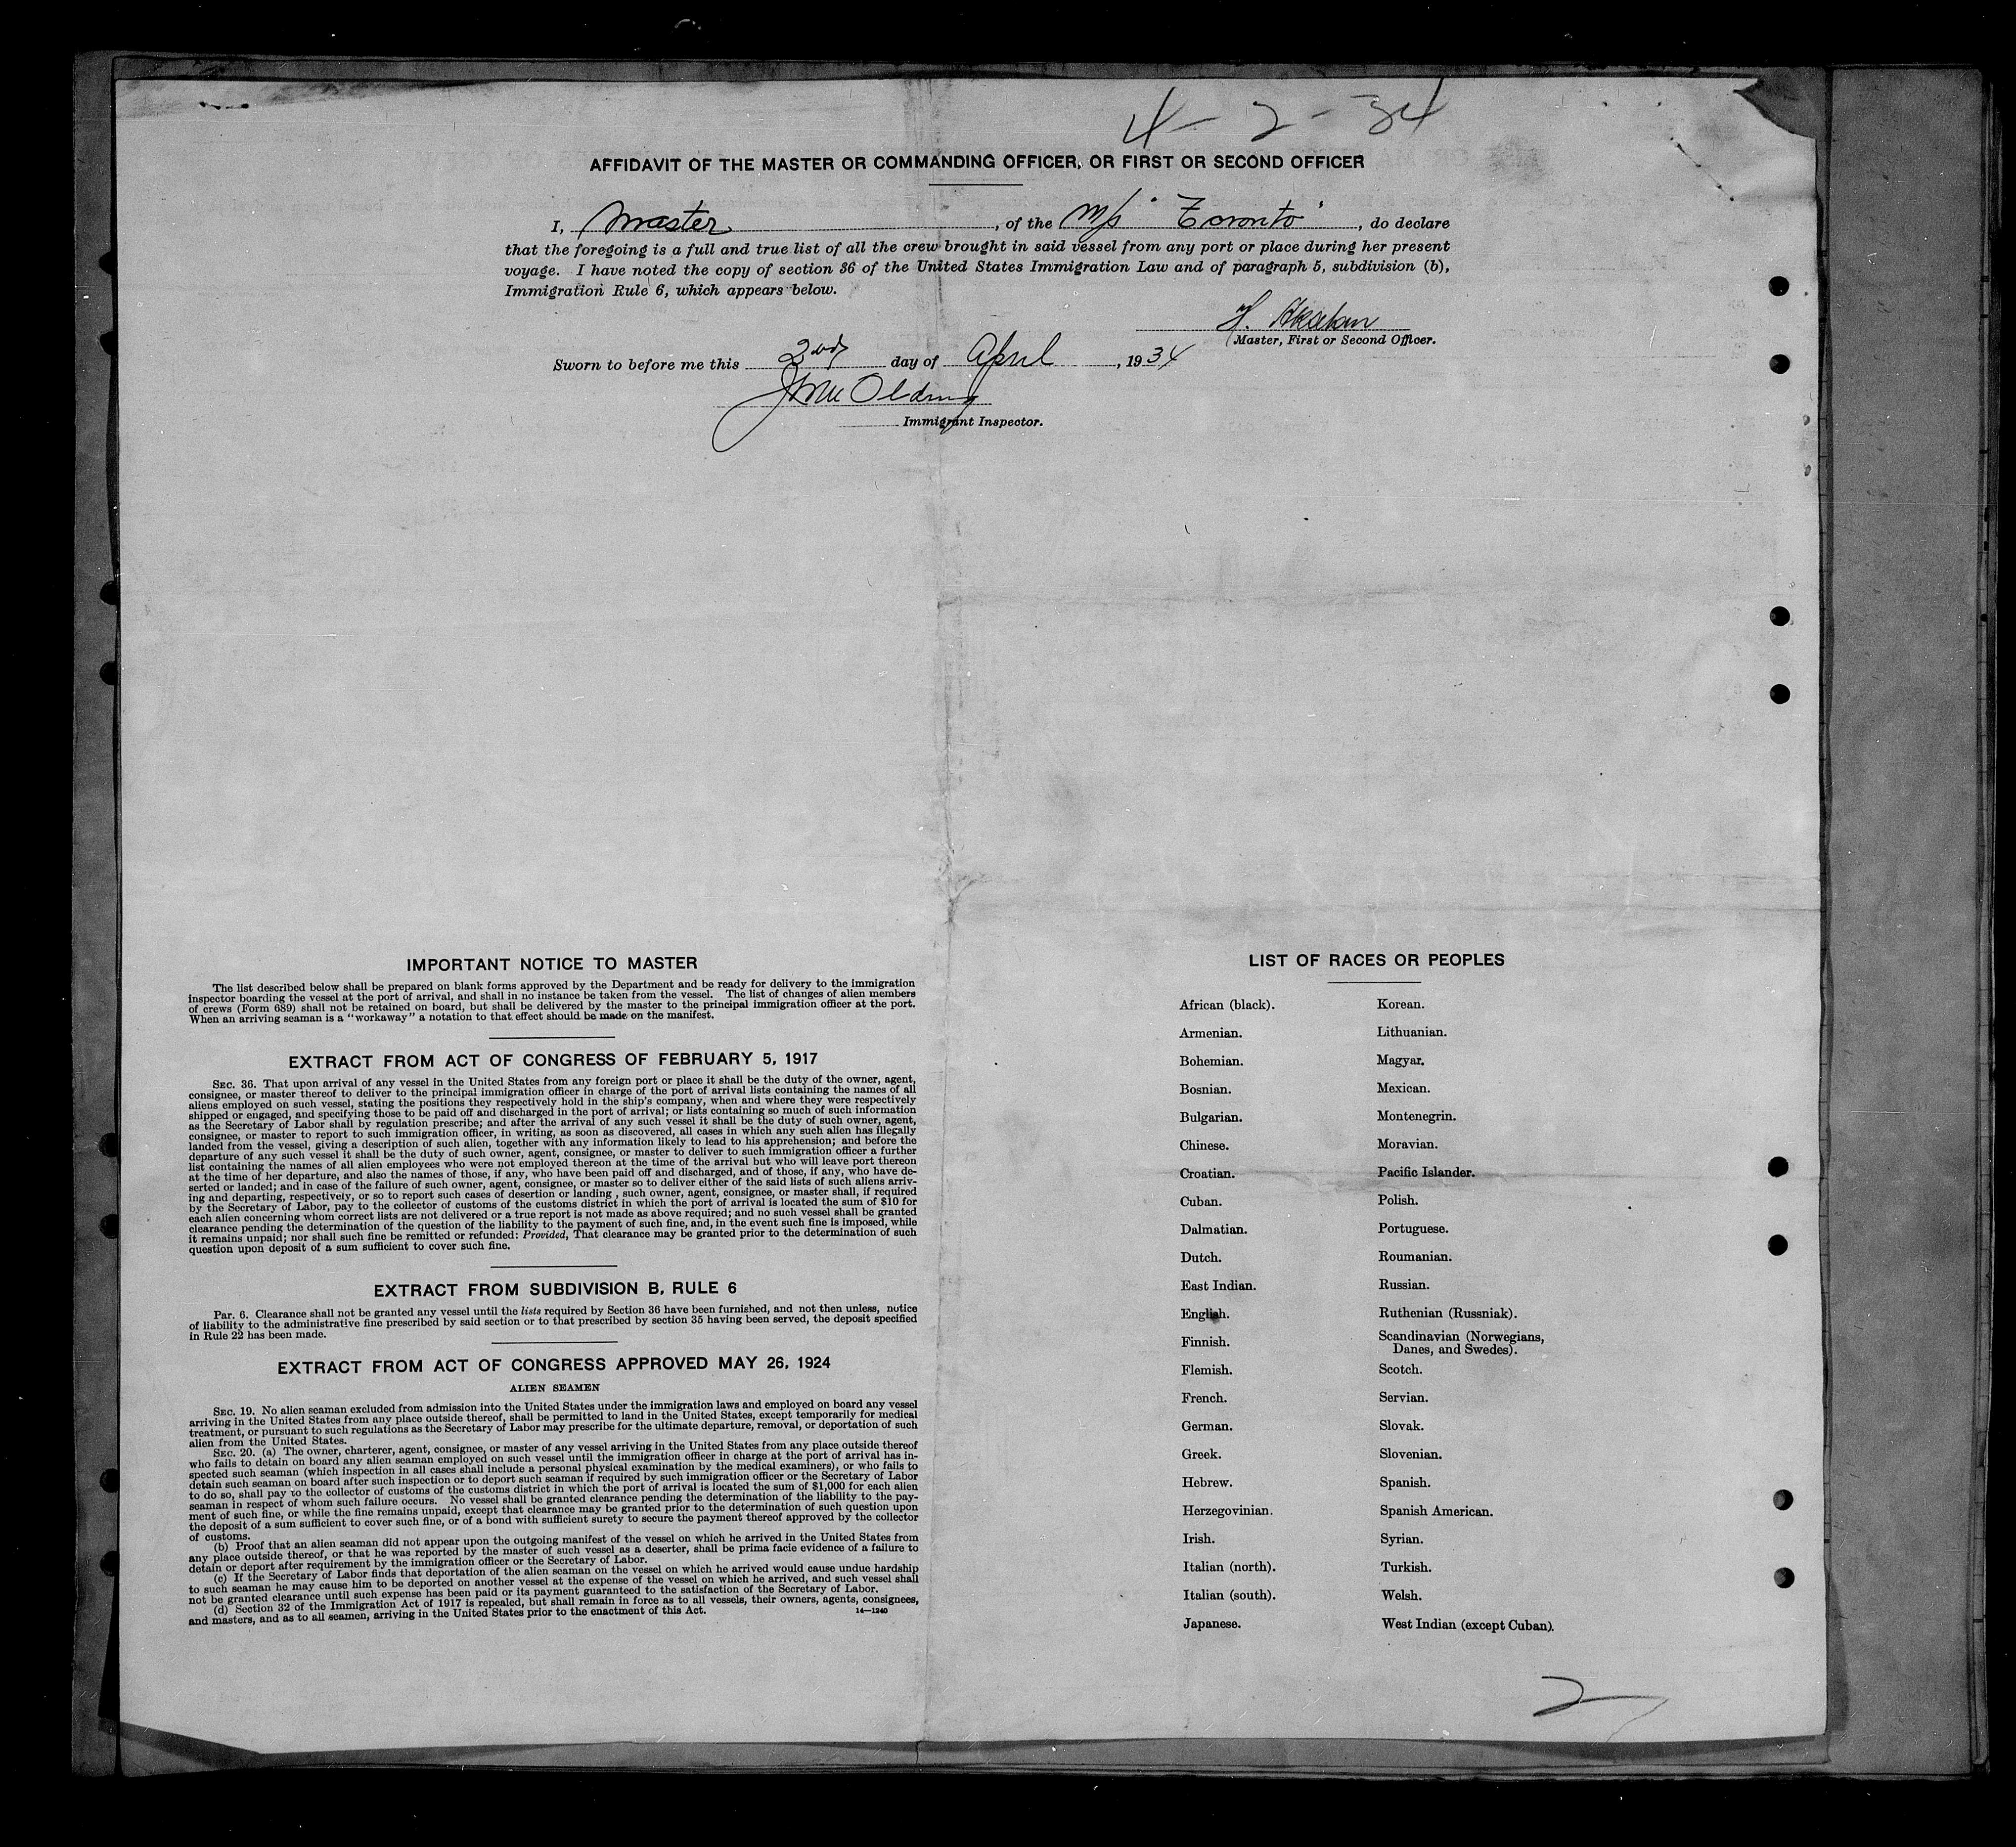 4-2-34
AFFIDAVIT OF THE MASTER OR COMMANDING OFFICER, OR FIRST OR SECOND OFFICER
I, Master, of the M/s "Toronto", do declare
that the foregoing is a full and true list of all the crew brought in said vessel from any port or place during her present
voyage. I have noted the copy of section 36 of the United States Immigration Law and of paragraph 5, subdivision (b),
Immigration Rule 6, which appears below.
H.
(Master, First or Second Officer.
Sworn to before me this 2nd day of April, 1934
Immigrant Inspector.
IMPORTANT NOTICE TO MASTER
The list described below shall be prepared on blank forms approved by the Department and be ready for delivery to the immigration
inspector boarding the vessel at the port of arrival, and shall in no instance be taken from the vessel. The list of changes of alien members
of crews (Form 689) shall not be retained on board, but shall be delivered by the master to the principal immigration officer at the port.
When an arriving seaman is a "workaway" a notation to that effect should be made on the manifest.
EXTRACT FROM ACT OF CONGRESS OF FEBRUARY 5, 1917
SEC. 36. That upon arrival of any vessel in the United States from any foreign port or place it shall be the duty of the owner, agent,
consignee, or master thereof to deliver to the principal immigration officer in charge of the port of arrival lists containing the names of all
aliens employed on such vessel, stating the positions they respectively hold in the ship's company, when and where they were respectively
shipped or engaged, and specifying those to be paid off and discharged in the port of arrival; or lists containing so much of such information
as the Secretary of Labor shall by regulation prescribe; and after the arrival of any such vessel it shall be the duty of such owner, agent,
consignee, or master to report to such immigration officer, in writing, as soon as discovered, all cases in which any such alien has illegally
landed from the vessel, giving a description of such alien, together with any information likely to lead to his apprehension; and before the
departure of any such vessel it shall be the duty of such owner, agent, consignee, or master to deliver to such immigration officer a further
list containing the names of all alien employees who were not employed thereon at the time of the arrival but who will leave port thereon
at the time of her departure, and also the names of those, if any, who have been paid off and discharged, and of those, if any, who have de-
serted or landed; and in case of the failure of such owner, agent, consignee, or master so to deliver either of the said lists of such aliens arriv-
ing and departing, respectively, or so to report such cases of desertion or landing, such owner, agent, consignee, or master shall, if required
by the Secretary of Labor, pay to the collector of customs of the customs district in which the port of arrival is located the sum of $10 for
each alien concerning whom correct lists are not delivered or a true report is not made as above required; and no such vessel shall be granted
clearance pending the determination of the question of the liability to the payment of such fine, and, in the event such fine is imposed, while
it remains unpaid; nor shall such fine be remitted or refunded: Provided, That clearance may be granted prior to the determination of such
question upon deposit of a sum sufficient to cover such fine.
EXTRACT FROM SUBDIVISION B, RULE 6
Par. 6. Clearance shall not be granted any vessel until the lists required by Section 36 have been furnished, and not then unless, notice
of liability to the administrative fine prescribed by said section or to that prescribed by section 35 having been served, the deposit specified
in Rule 22 has been made.
EXTRACT FROM ACT OF CONGRESS APPROVED MAY 26, 1924
ALIEN SEAMEN
SEC. 19. No alien seaman excluded from admission into the United States under the immigration laws and employed on board any vessel
arriving in the United States from any place outside thereof, shall be permitted to land in the United States, except temporarily for medical
treatment, or pursuant to such regulations as the Secretary of Labor may prescribe for the ultimate departure, removal, or deportation of such
alien from the United States.
SEC. 20. (a) The owner, charterer, agent, consignee, or master of any vessel arriving in the United States from any place outside thereof
who fails to detain on board any alien seaman employed on such vessel until the immigration officer in charge at the port of arrival has in-
spected such seaman (which inspection in all cases shall include a personal physical examination by the medical examiners), or who fails to
detain such seaman on board after such inspection or to deport such seaman if required by such immigration officer or the Secretary of Labor
to do so, shall pay to the collector of customs of the customs district in which the port of arrival is located the sum of $1,000 for each alien
seaman in respect of whom such failure occurs. No vessel shall be granted clearance pending the determination of the liability to the pay-
ment of such fine, or while the fine remains unpaid, except that clearance may be granted prior to the determination of such question upon
the deposit of a sum sufficient to cover such fine, or of a bond with sufficient surety to secure the payment thereof approved by the collector
of customs.
(b) Proof that an alien seaman did not appear upon the outgoing manifest of the vessel on which he arrived in the United States from
any place outside thereof, or that he was reported by the master of such vessel as a deserter, shall be prima facie evidence of a failure to
detain or deport after requirement by the immigration officer or the Secretary of Labor.
(c) If the Secretary of Labor finds that deportation of the alien seaman on the vessel on which he arrived would cause undue hardship
to such seaman he may cause him to be deported on another vessel at the expense of the vessel on which he arrived, and such vessel shall
not be granted clearance until such expense has been paid or its payment guaranteed to the satisfaction of the Secretary of Labor.
(d) Section 32 of the Immigration Act of 1917 is repealed, but shall remain in force as to all vessels, their owners, agents, consignees,
and masters, and as to all seamen, arriving in the United States prior to the enactment of this Act. 14—1240
LIST OF RACES OR PEOPLES
African (black).
Armenian.
Bohemian.
Bosnian.
Bulgarian.
Chinese.
Croatian.
Cuban.
Dalmatian.
Dutch.
East Indian.
English.
Finnish.
Flemish.
French.
German.
Greek.
Hebrew.
Herzegovinian.
Irish.
Italian (north).
Italian (south).
Japanese.
Korean.
Lithuanian.
Magyar.
Mexican.
Montenegrin.
Moravian.
Pacific Islander.
Polish.
Portuguese.
Roumanian.
Russian.
Ruthenian (Russniak).
Scandinavian (Norwegians,
Danes, and Swedes).
Scotch.
Servian.
Slovak.
Slovenian.
Spanish.
Spanish American.
Syrian.
Turkish.
Welsh.
West Indian (except Cuban).
2